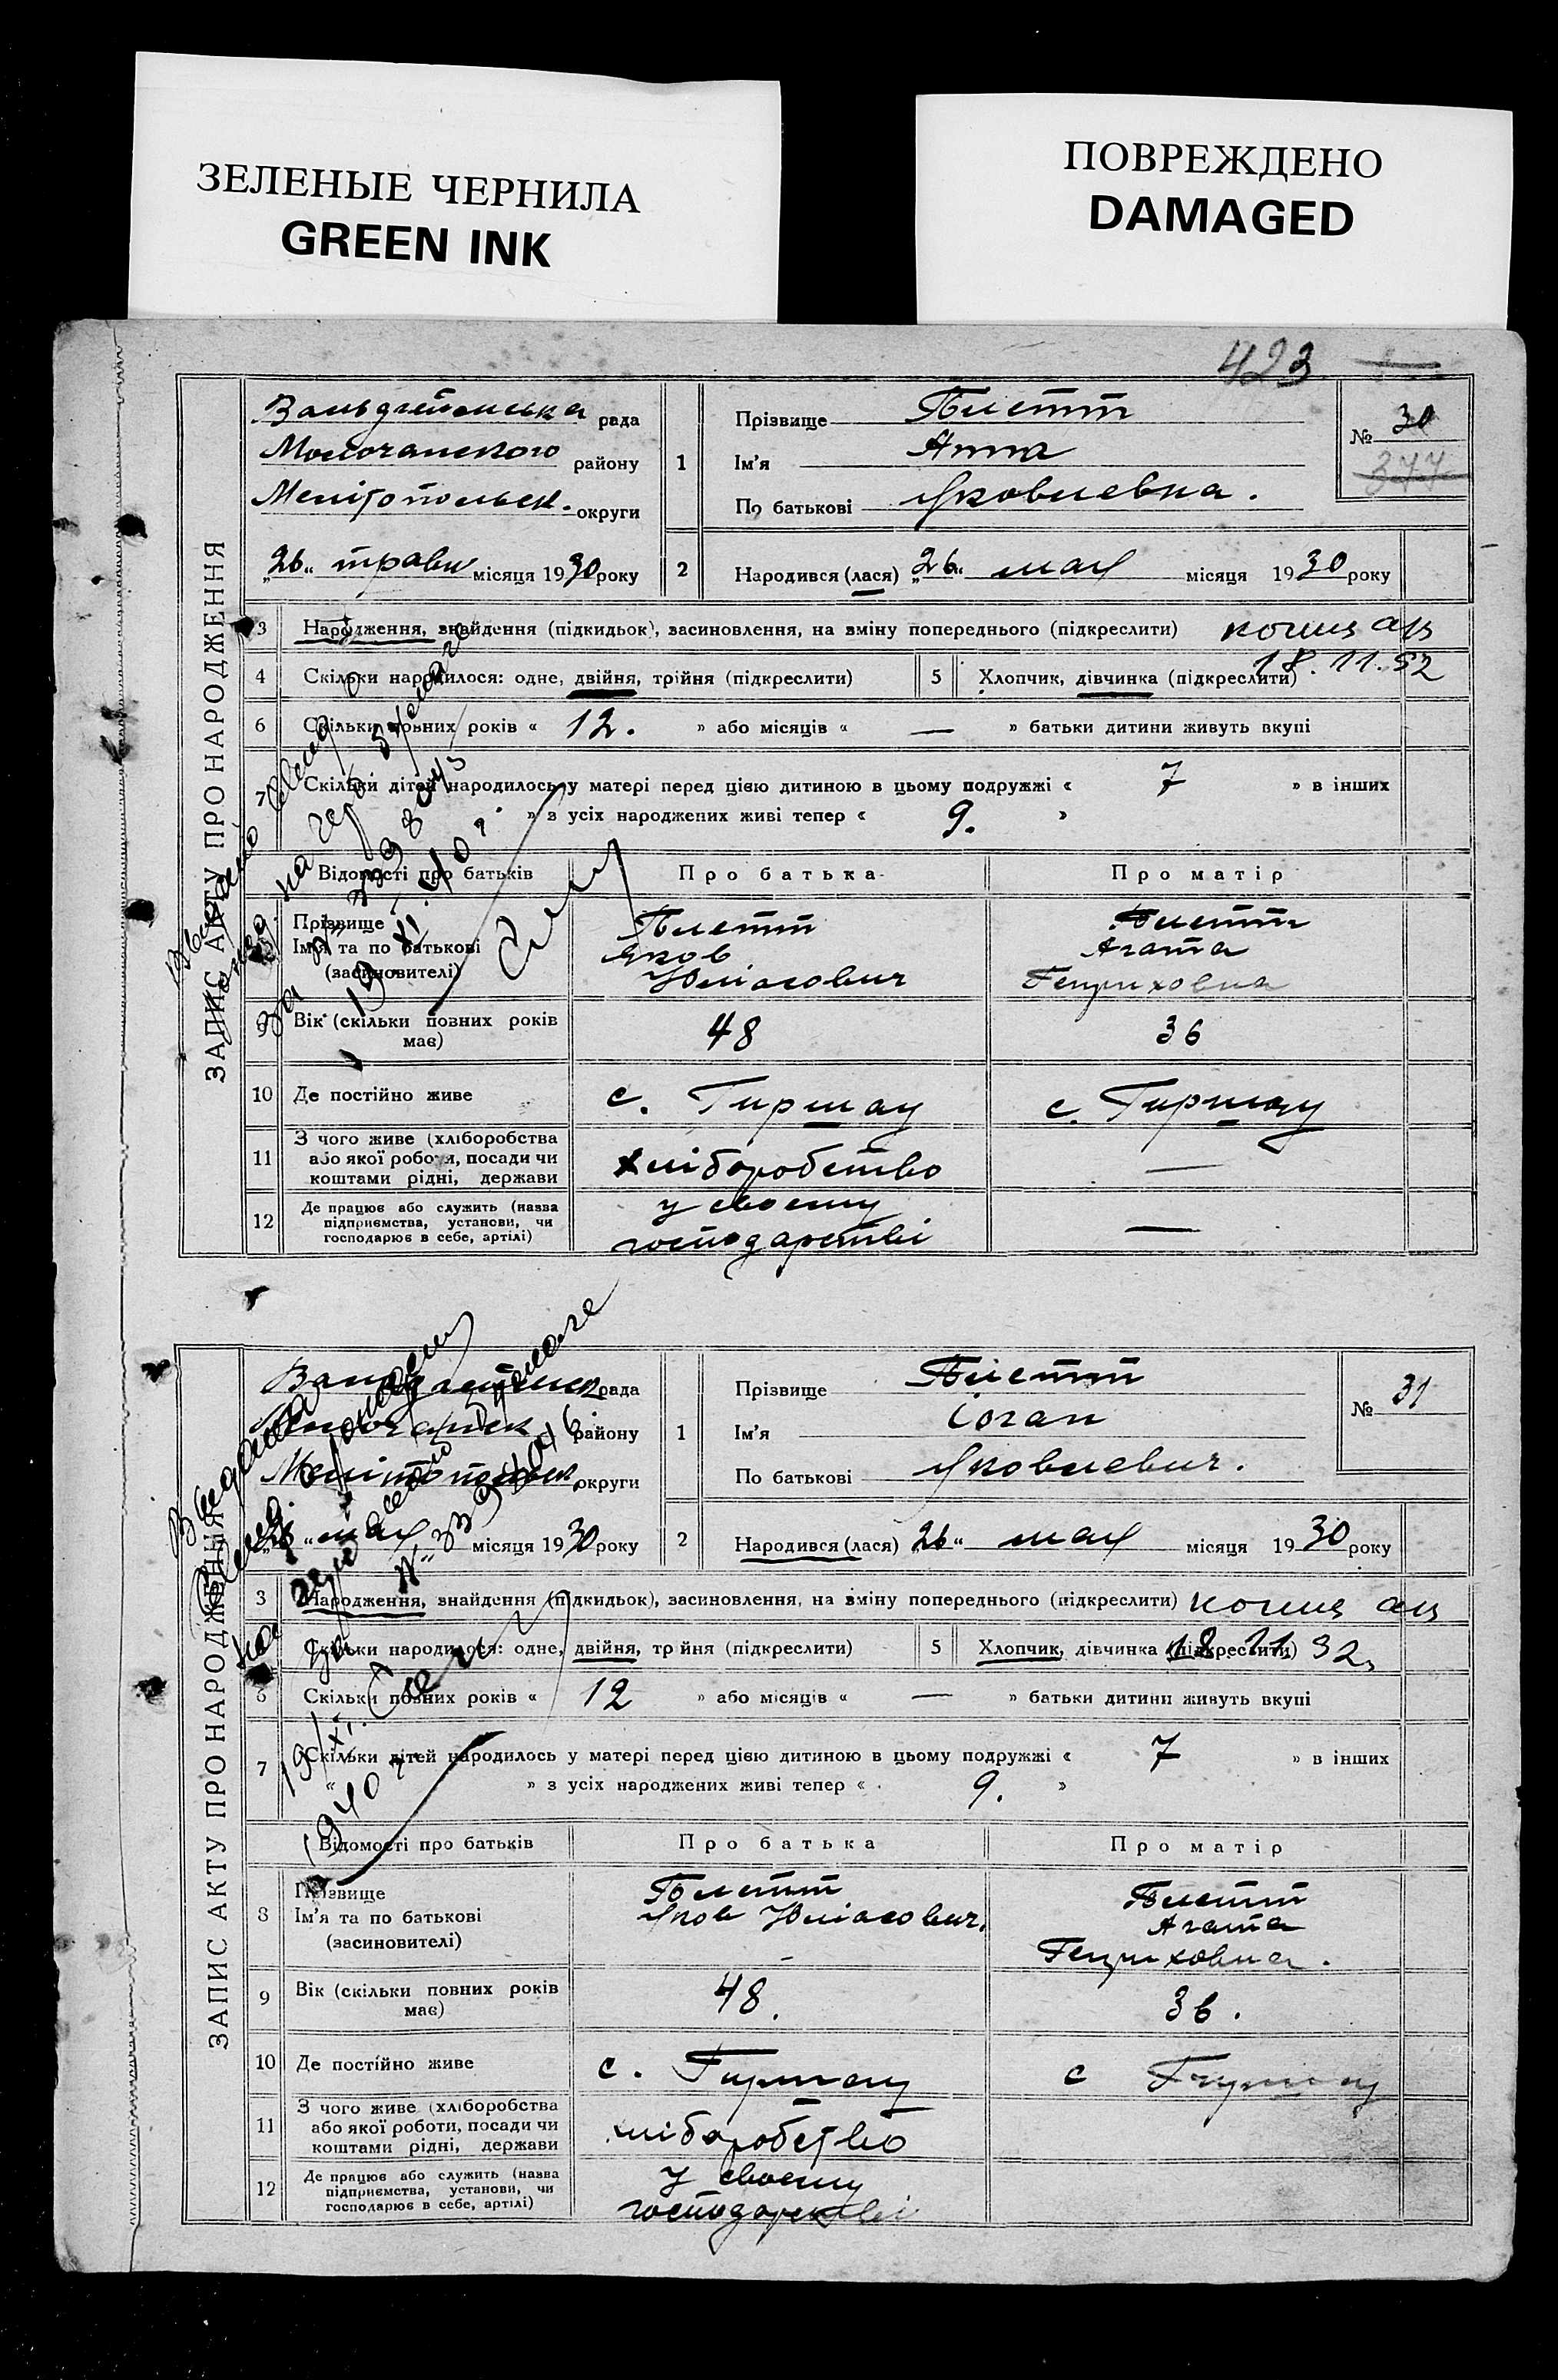 ЗЕЛЕНЫЕ ЧЕРНИЛА
GREEN INK
ПОВРЕЖДЕНО
DAMAGED
423
ЗАПИС АКТУ ПРО НАРОДЖЕННЯ
рада
Молочанского району
Мелітопольск. округи
„26“ травн місяця 1930 року
1
Прізвище Плетт
Ім'я Анна
По батькові Яковлевна.
№ 30
377
2 Народився (лася) „26“ мая місяця 1930 року
3 Народження, знайдення (підкидьок), засиновлення, на зміну попереднього (підкреслити)
18.11.32
4 Скільки народилося: одне, двійня, трійня (підкреслити)
5 Хлопчик, дівчинка (підкреслити)
6 Скільки повних років « 12. » або місяців « — » батьки дитини живуть вкупі
7 Скільки дітей народилось у матері перед цією дитиною в цьому подружжі « 7 » в інших
» з усіх народжених живі тепер « 9. »
Відомості про батьків
Про батька
Про матір
Прізвище
Ім'я та по батькові
(засиновителі)
Плетт
Яков
Юліасович
Плетт
Агата
Генриховна
9 Вік (скільки повних років має)
48
36
10 Де постійно живе
с. Гиршау
с. Гиршау
11 З чого живе (хліборобства
або якої роботи, посади чи
коштами рідні, держави
хліборобство
—
12 Де працює або служить (назва
підприємства, установи, чи
господарює в себе, артілі)
у своему
господарстві
—
ЗАПИС АКТУ ПРО НАРОДЖЕННЯ
рада
району
Мелітопольск. округи
„26“ мая місяця 1930 року
1
Прізвище Плетт
Ім'я Іоган
По батькові Яковлевич.
№ 31
2 Народився (лася) 26“ мая місяця 1930 року
3 Народження, знайдення (підкидьок), засиновлення, на зміну попереднього (підкреслити)
18.11.32
Скільки народилося: одне, двійня, трійня (підкреслити)
5 Хлопчик, дівчинка (підкреслити)
6 Скільки повних років « 12 » або місяців « — » батьки дитини живуть вкупі
7 Скільки дітей народилось у матері перед цією дитиною в цьому подружжі « 7 » в інших
» з усіх народжених живі тепер « 9. »
Відомості про батьків
Про батька
Про матір
8
Прізвище
Ім'я та по батькові
(засиновителі)
Плетт
Яков Юліасович.
Плетт
Агата
Генриховна.
9 Вік (скільки повних років має)
48.
36.
10 Де постійно живе
с. Гиршау
с Гиршау
11 З чого живе (хліборобства
або якої роботи, посади чи
коштами рідні, держави
хліборобство
12 Де працює або служить (назва
підприємства, установи, чи
господарює в себе, артілі)
у своему
господарстві